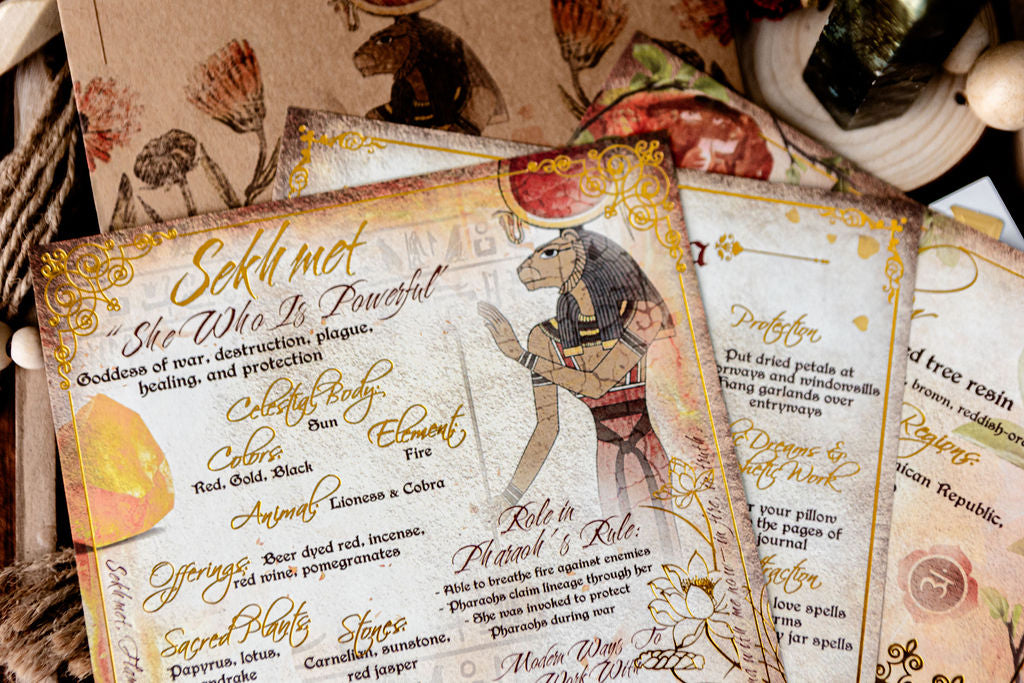 Sekhmet
"She Who Is Powerful"
Goddess of war, destruction, plague,
healing, and protection
Celestial Body:
Sun
Colors:
Red, Gold, Black
Element:
Fire
Animal: Lioness & Cobra
Offerings: Beer dyed red, incense,
red wine, pomegranates
Sacred Plants:
Papyrus, lotus,
Stones:
Carnelian, sunstone,
red jasper
Role in
Pharaoh's Rule:
- Able to breathe fire against enemies
- Pharaohs claim lineage through her
- She was invoked to protect
Pharaohs during war
Modern Ways To
Work With
Sekhmet:
Protection
Put dried petals at
and windowsills
hang garlands over
entryways
Dreams &
Work
your pillow
the pages of
journal
love spells
jar spells
tree resin
brown,
Regions:
Republic,